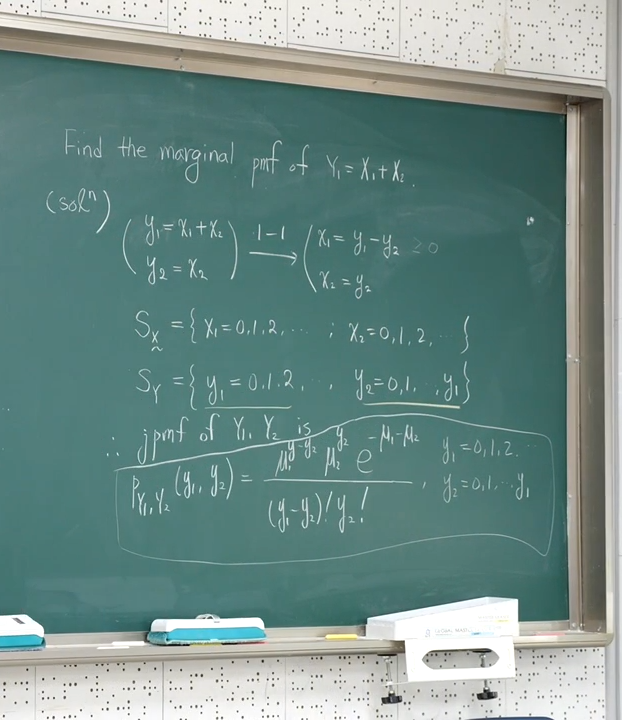 Find the marginal pmf of Y₁ = X₁ + X₂.
(solⁿ)
( y₁ = x₁ + x₂ ; y₂ = x₂ ) 1-1 → ( x₁ = y₁ - y₂ ≥ 0 ; x₂ = y₂ )
S_X = { x₁ = 0,1,2, ... ; x₂ = 0,1,2, ... }
S_Y = { y₁ = 0,1,2, ..., y₂ = 0,1,...,y₁ }
∴ jpmf of Y₁, Y₂ is
P_{Y₁,Y₂}(y₁, y₂) = μ₁^{y₁-y₂} μ₂^{y₂} e^{-μ₁-μ₂} / (y₁-y₂)! y₂! , y₁ = 0,1,2... y₂ = 0,1,...y₁